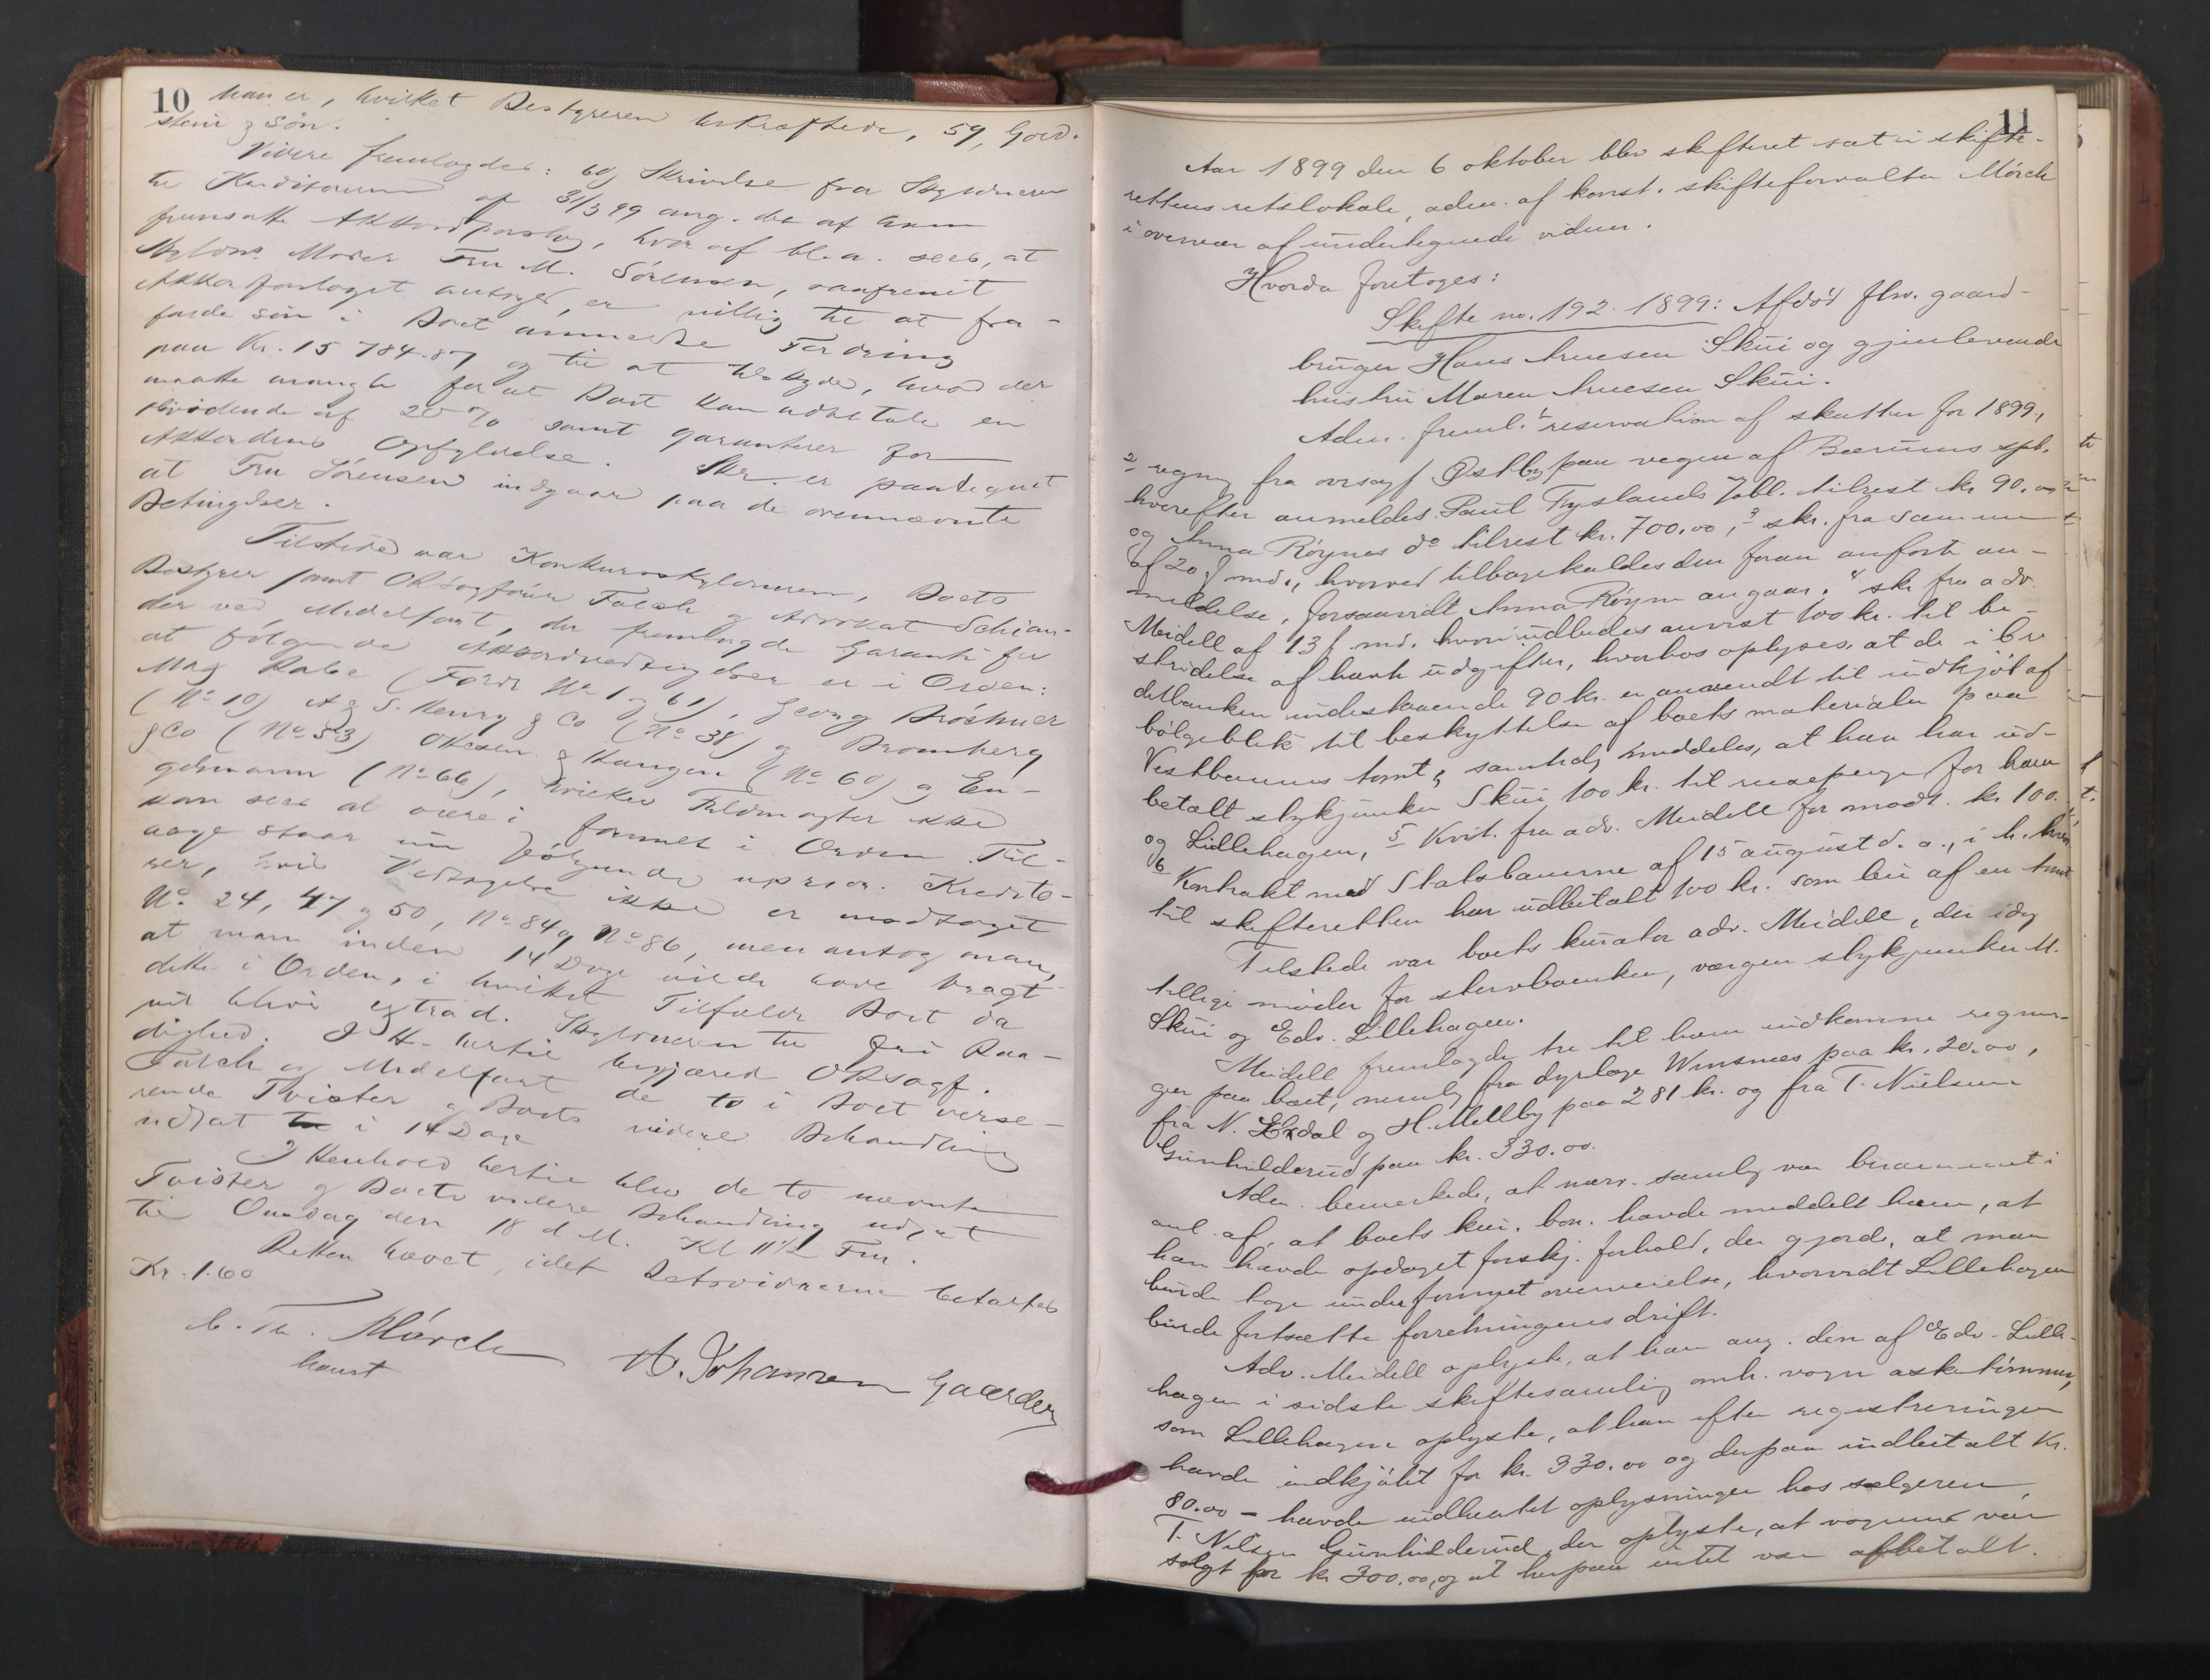 10
man er, hvilket Bestyreren bekræftede, 59, Gold-
stein & Søn.
Videre fremlagdes: 60, Skrivelse fra Skyldneren
til Kreditorerne af 31/3 99 ang. det af ham
fremsatte Akkordforslag, hvoraf bl. a. sees, at
Skyldns. Moder Fru M. Sørensen, saafremt
Akkordforslaget antages, er villig til at fra-
falde sin i Boet anmeldte Fordring
paa Kr. 15 784.87 og til at tilskyde, hvad der
maatte mangle for at Boet kan udbetale en
Dividende af 20% samt garanterer for
Akkordens Opfyldelse. Skr. er paategnet
at Fru Sørensen indgaar paa de ovennævnte
Betingelser.
Tilstede var Konkursskyldneren, Boets
Bestyrer samt ORsagfører Falch og Advokat Schian-
der ved Medelfart, der fremlagde Garanti for
at følgende Akkordvedtagelser er i Orden:
Mag Rabe (Fordr No 1 og 61), Georg Brøchner
(No 10) A & S. Henry & Co (No 38) og Bromberg
& Co (No 53) Olesen & Haugen (No 60) og En-
gelmann (No 66), hvilke Fuldmagter ikke
kan sees at være i formel Orden. Til-
bage staar nu følgende uprior. Kredito-
rer, hvis Vedtagelse ikke er modtaget
No 24, 47 og 50, No 84 og No 86, men antog man,
at man inden 14 Dage vilde have bragt
dette i Orden, i hvilket Tilfælde Boet da
vil blive extrad. Skyldneren til fri Raa-
dighed. I H. hertil begjæred ORsagf.
Falch og Medelfart de to i Boet verse-
rende Tvister og Boets videre Behandling
udsat i 14 Dage
I Henhold hertil blev de to nævnte
Tvister og Boets videre Behandling udsat
til Onsdag den 18 d. M. Kl 11½ Fm.
Retten hævet, idet Retsvidnerne betaltes
Kr. 1.60
C. Th. Mørch
konst
A. Johansen Gaarder
11
Aar 1899 den 6 oktober blev skifteret sat i skifte-
rettens retslokale, adm. af konst. skifteforvalter Mørch
i overvær af undertegnede vidner.
Hvorda foretoges:
Skifte no. 192. 1899: Afdød fhv. gaard-
bruger Hans Arnesen Skui og gjenlevende
hustru Maren Arnesen Skui.
Adm. freml. 1 reservation af skatter for 1899,
2 regning fra orsagf Østby paa vegne af Bærums spb.
hvorefter anmeldes Paul Tyslands obl. tilrest kr 90.00
og Anna Røynes do tilrest kr. 700.00, 3 skr. fra samme
af 20 f. md., hvorved tilbagekaldes den foran anførte an-
meldelse, forsaavidt Anna Røyne angaar. 4 skr fra adv.
Meidell af 13 f. md. hvori udbedes anvist 100 kr. til be-
stridelse af havte udgifter, hvorhos oplyses, at de i Cre
ditbanken indestaaende 90 kr. er anvendt til indkjøb af
bølgeblik til beskyttelse af boets materialer paa
Vestbanens tomt, samtidig meddeles, at han har ud-
betalt stykjunker Skui 100 kr. til reisepenge for ham
og Lillehagen, 5 Kvit. fra adv. Meidell for modt. kr 100.
6 Kontrakt med Statsbanerne af 15 august d. a., i h. hvortil
til skifteretten har udbetalt 100 kr. som leie af en tomt
Tilstede var boets kurator adv. Meidell, der idag
tillige møder for stervboenken, værgen stykjunker M.
Skui og Edv. Lillehagen.
Meidell fremlagde tre til ham indkomne regnin-
ger paa boet, nemlig fra dyrlæge Winsnes paa kr. 20.00,
fra N. Ekdal og H. Mellby paa 281 kr. og fra T. Nielsen
Gunhilderud paa kr. 330.00.
Adm. bemerkede, at nærv. samling var berammet i
anl. af, at boets kur. bor. havde meddelt ham, at
han havde opdaget forskj. forhold, der gjorde, at man
burde tage under fornyet overveielse, hvorvidt Lillehagen
burde fortsætte forretningens drift.
Adv. Meidell oplyste, at han ang. den af Edv. Lille-
hagen i sidste skiftesamling omh. vogn asketømmer,
som Lillehagen oplyste, at han efter registreringen
havde indkjøbt for kr. 330.00 og derpaa indbetalt Kr.
80.00 – havde indhentet oplysninger hos sælgeren,
T. Nilsen Gunhilderud, der oplyste, at vognene var
solgt for kr 300.00, og at herpaa intet var afbetalt.